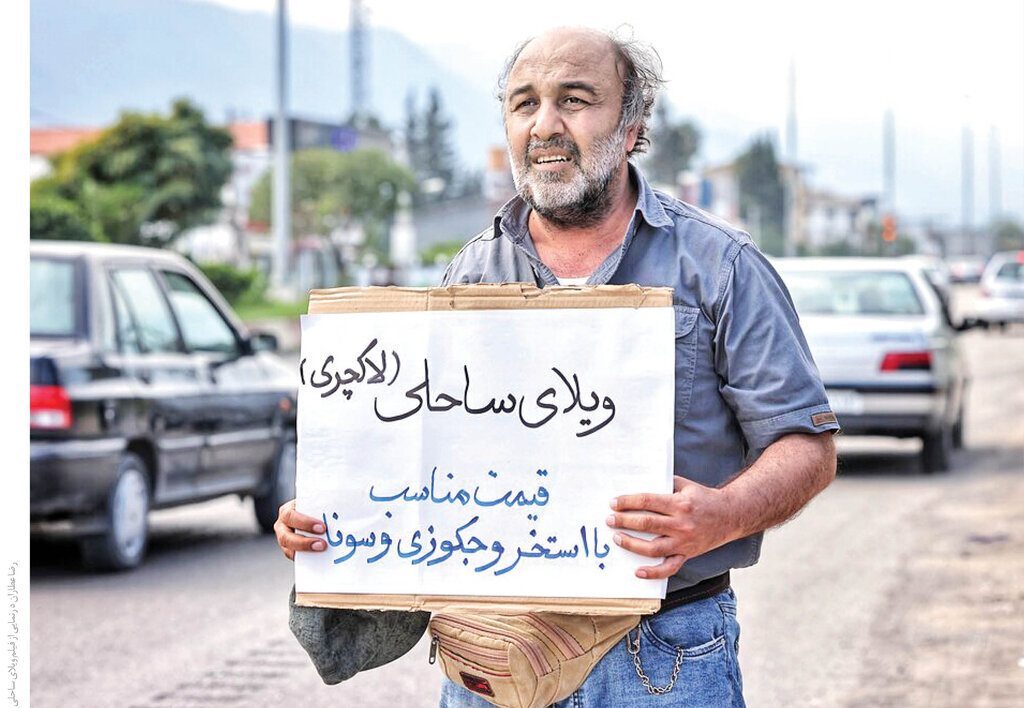 ویلای ساحلی (لاکچری)
قیمت مناسب
با استخر و جکوزی و سونا
رضا عطاران در نمایی از فیلم ویلای ساحلی